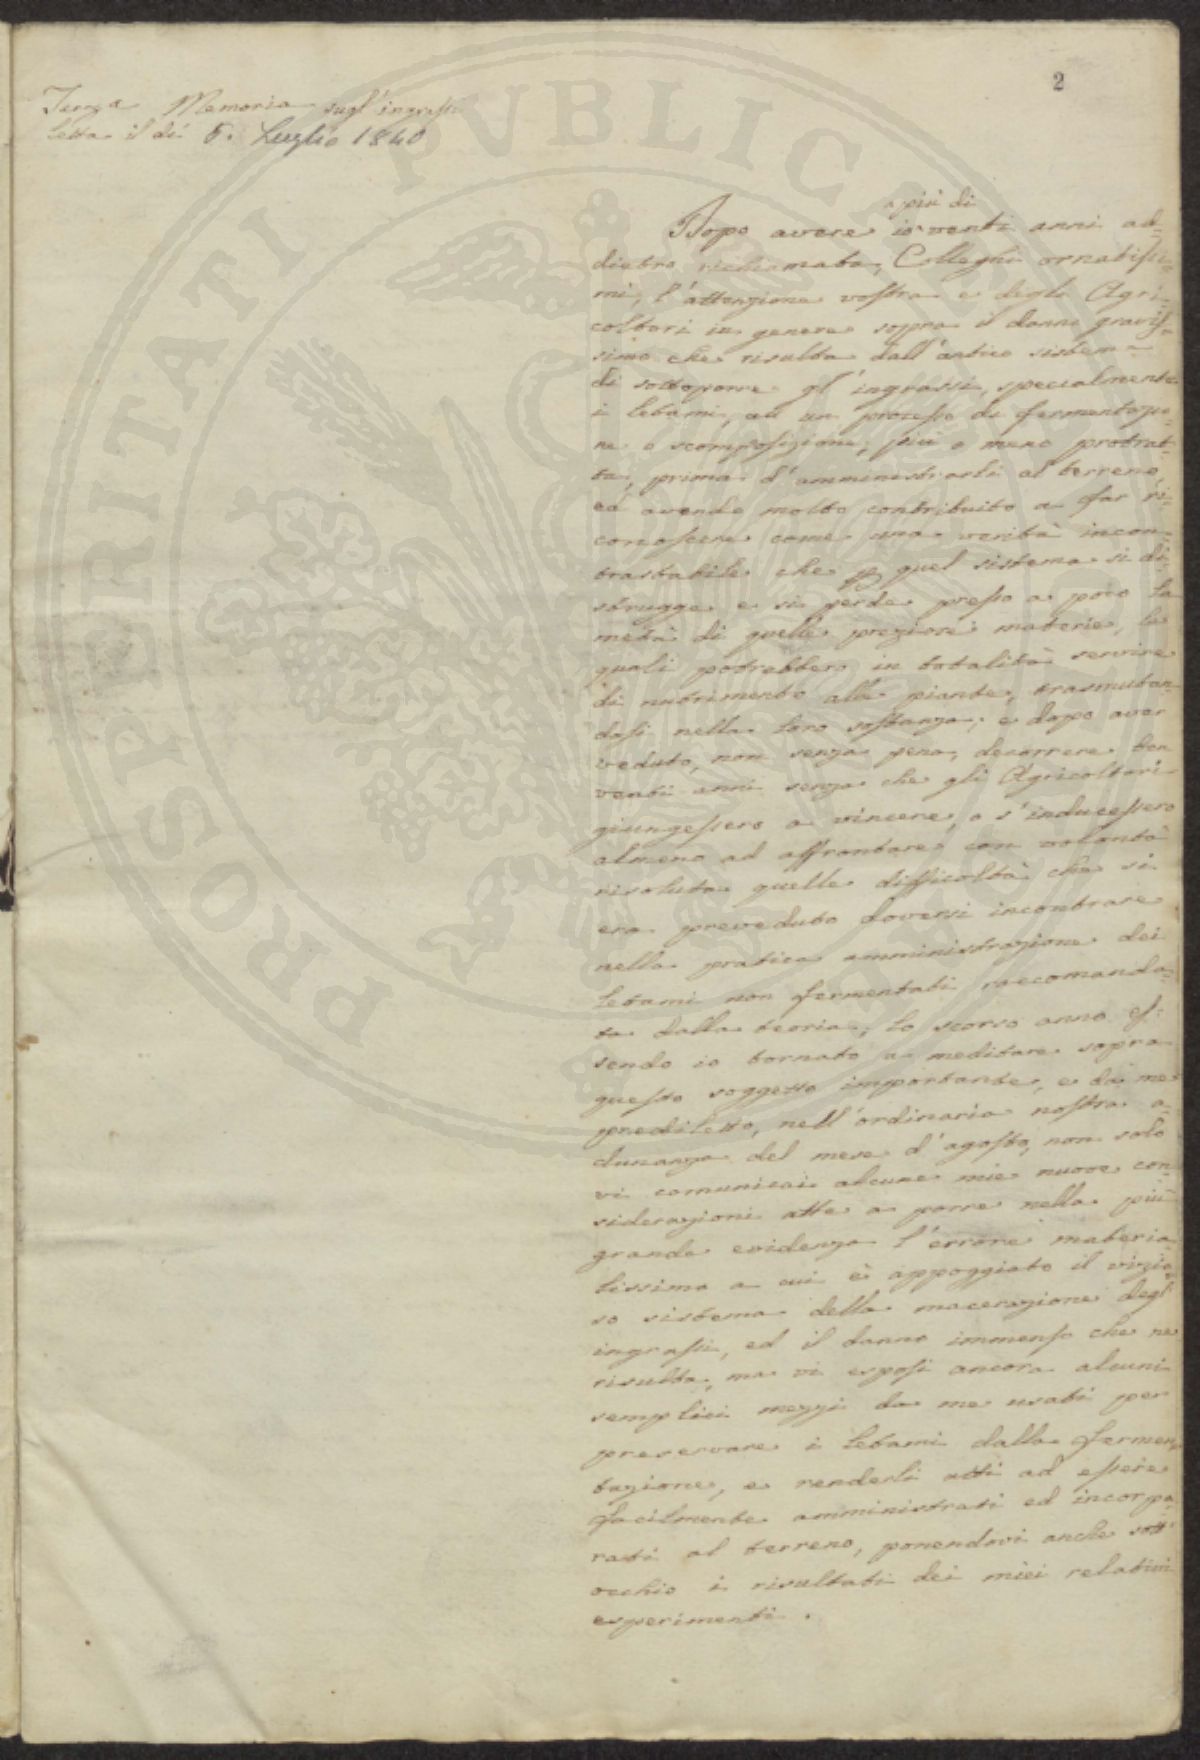 2
Terza Memoria sugl'ingrassi
letta il dì 5. Luglio 1840
a più di
Dopo avere io venti anni ad-
dietro richiamata, Colleghi ornatissi-
mi, l'attenzione vostra e degli Agri-
coltori in genere sopra il danno gravis-
simo che risulta dall'antico sistema
di sottoporre gl'ingrassi, specialmente
i letami, ad un processo di fermentazio-
ne o scomposizione, più o meno protrat-
ta, prima d'amministrarli al terreno
ed avendo molto contribuito a far ri-
conoscere come una verità incon-
trastabile che p quel sistema si di-
strugge e si perde presso a poco la
metà di quelle preziose materie, le
quali potrebbero in totalità servire
di nutrimento alle piante, trasmutan-
dosi nella loro sostanza; e dopo aver
veduto, non senza pena, decorrere ben
venti anni senza che gli Agricoltori
giungessero a vincere, o s'inducessero
almeno ad affrontare con volontà
risoluta quelle difficoltà che si
era preveduto doversi incontrare
nella pratica amministrazione dei
letami non fermentati raccomanda-
ta dalla teoria; lo scorso anno es-
sendo io tornato a meditare sopra
questo soggetto importante, e da me
prediletto, nell'ordinaria nostra a-
dunanza del mese d'agosto, non solo
vi comunicai alcune mie nuove con-
siderazioni atte a porre nella più
grande evidenza l'errore materia-
lissimo a cui è appoggiato il vizio-
so sistema della macerazione degl'
ingrassi, ed il danno immenso che ne
risulta, ma vi esposi ancora alcuni
semplici mezzi da me usati per
preservare i letami dalla fermen-
tazione, e renderli atti ad essere
facilmente amministrati ed incorpo-
rati al terreno, ponendovi anche sott'
occhio i risultati dei miei relativi
esperimenti.
PROSPERITATI PVBLICAE